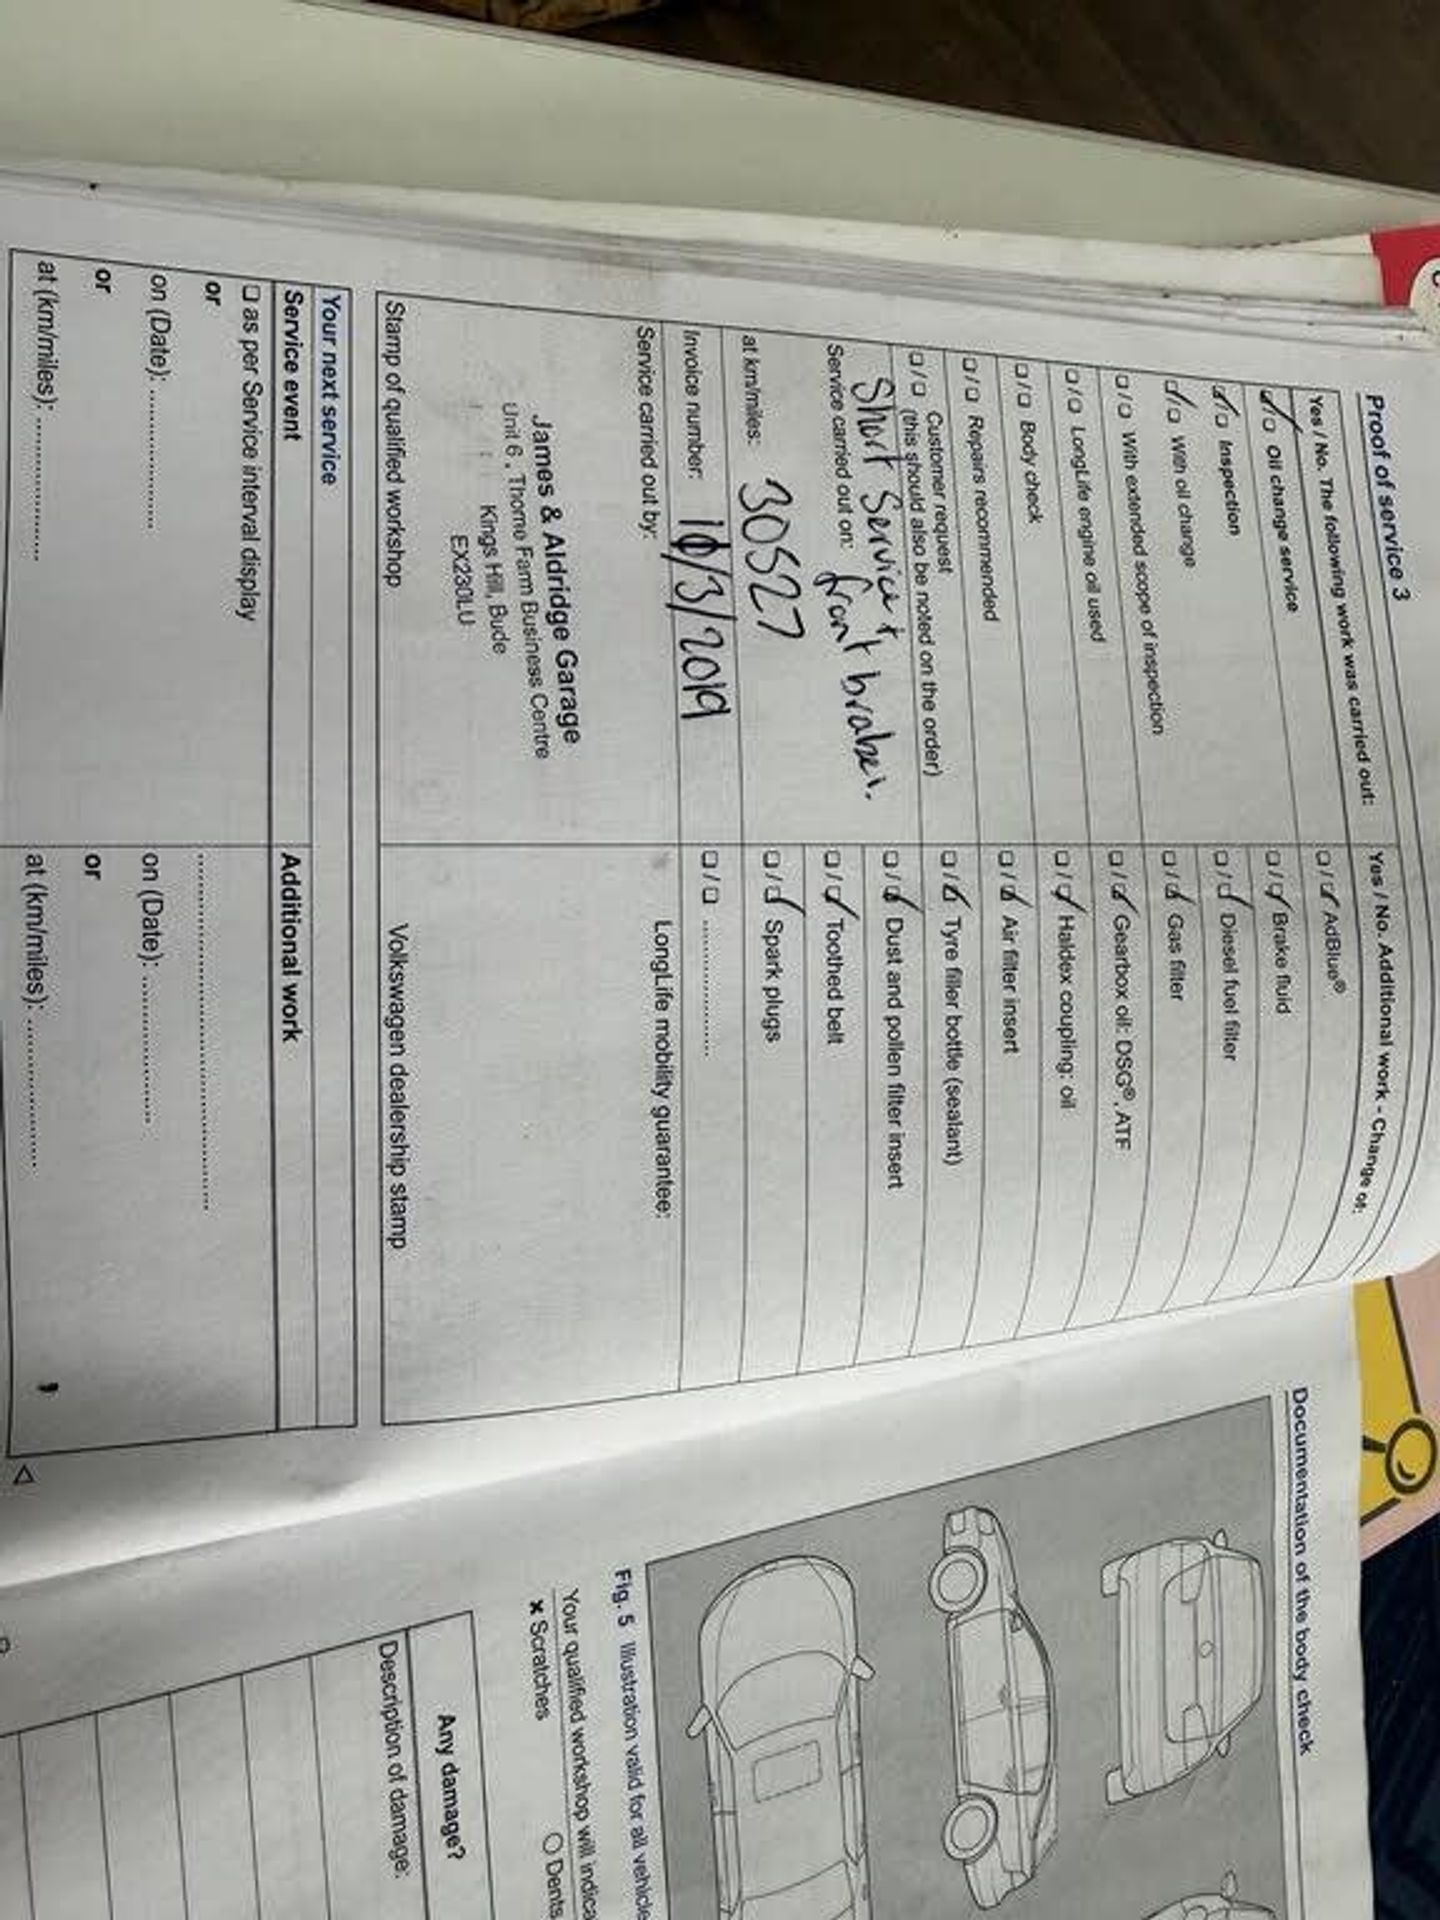 Proof of service 3
Yes / No. The following work was carried out:
Oil change service
Inspection
With oil change
With extended scope of inspection
LongLife engine oil used
Body check
Repairs recommended
Customer request
(this should also be noted on the order)
Service carried out on:
Short Service +
front brakes.
at km/miles: 30527
Invoice number: 10/3/2019
Service carried out by:
James & Aldridge Garage
Unit 6, Thorne Farm Business Centre
Kings Hill, Bude
EX230LU
Stamp of qualified workshop
Yes / No. Additional work - Change of:
AdBlue®
Brake fluid
Diesel fuel filter
Gas filter
Gearbox oil: DSG®, ATF
Haldex coupling: oil
Air filter insert
Tyre filler bottle (sealant)
Dust and pollen filter insert
Toothed belt
Spark plugs
LongLife mobility guarantee:
Volkswagen dealership stamp
Your next service
Service event
as per Service interval display
or
on (Date):
or
at (km/miles):
Additional work
on (Date):
or
at (km/miles):
Documentation of the body check
Fig. 5 Illustration valid for all vehicle
Your qualified workshop will indica
x Scratches O Dents
Any damage?
Description of damage: